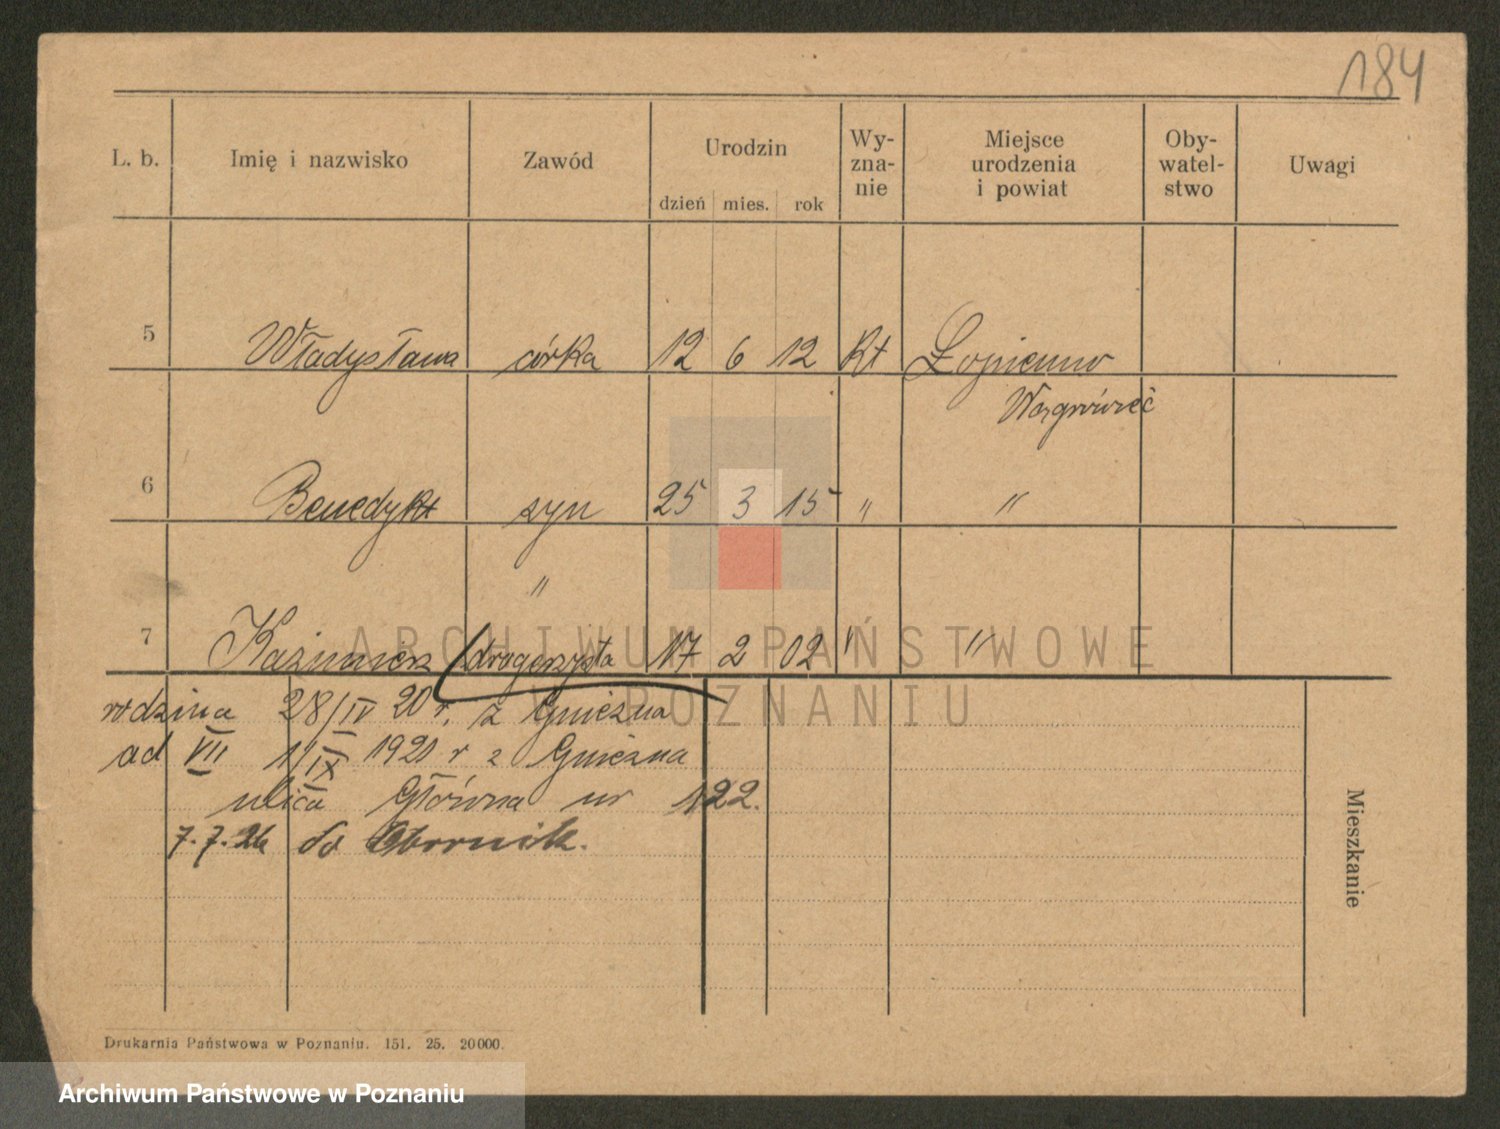 184
L. b. Imię i nazwisko Zawód Urodzin dzień mies. rok Wy-zna-nie Miejsce urodzenia i powiat Oby-watel-stwo Uwagi
5 Władysława córka 12 6 12 Rt Łopienno
Wągrówiec
6 Benedykt syn 25 3 15 " "
"
7 Kazimierz drogerzysta 17 2 02 " "
ARCHIWUM PAŃSTWOWE
W POZNANIU
rodzina 28/IV 20 r. z Gniezna
ad VII 1/IX 1921 r z Gniezna
ulica Główna nr 122.
7.7.26 do Obornik.
Mieszkanie
Drukarnia Państwowa w Poznaniu. 151. 25. 20000.
Archiwum Państwowe w Poznaniu